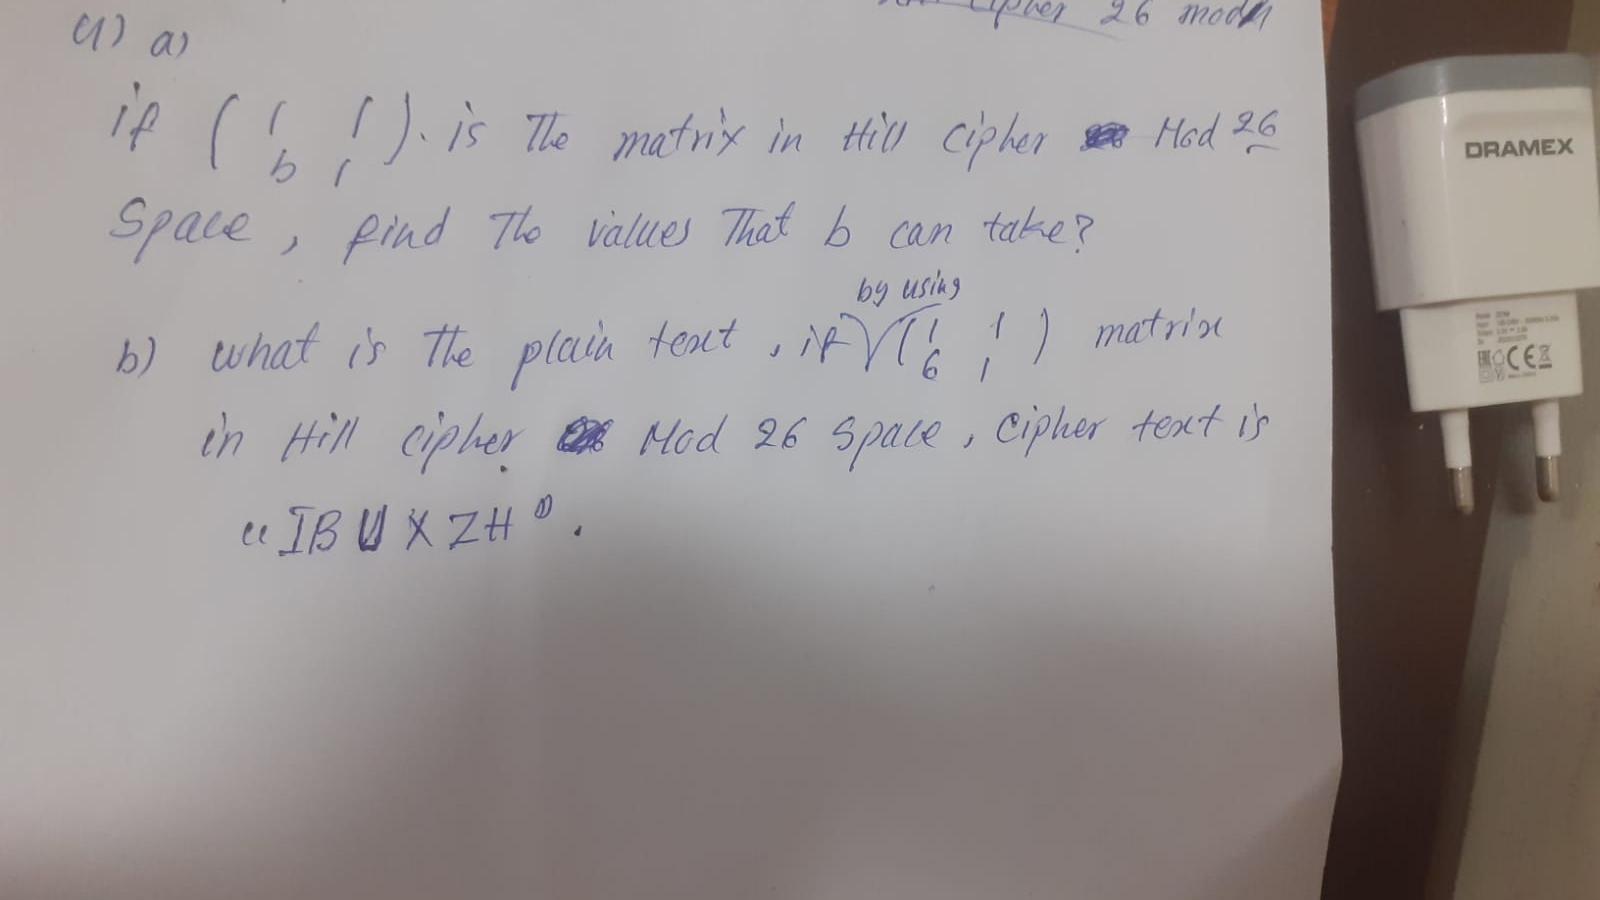 Cipher 26 mod
4) a)
if ( 1 1 ). is The matrix in Hill Cipher Mod 26
b 1
Space, find The values That b can take?
by using
b) what is The plain text, if ( 1 1 ) matrix
6 1
in Hill cipher Mod 26 Space, Cipher text is
"IBUXZH".
DRAMEX
EAC CE